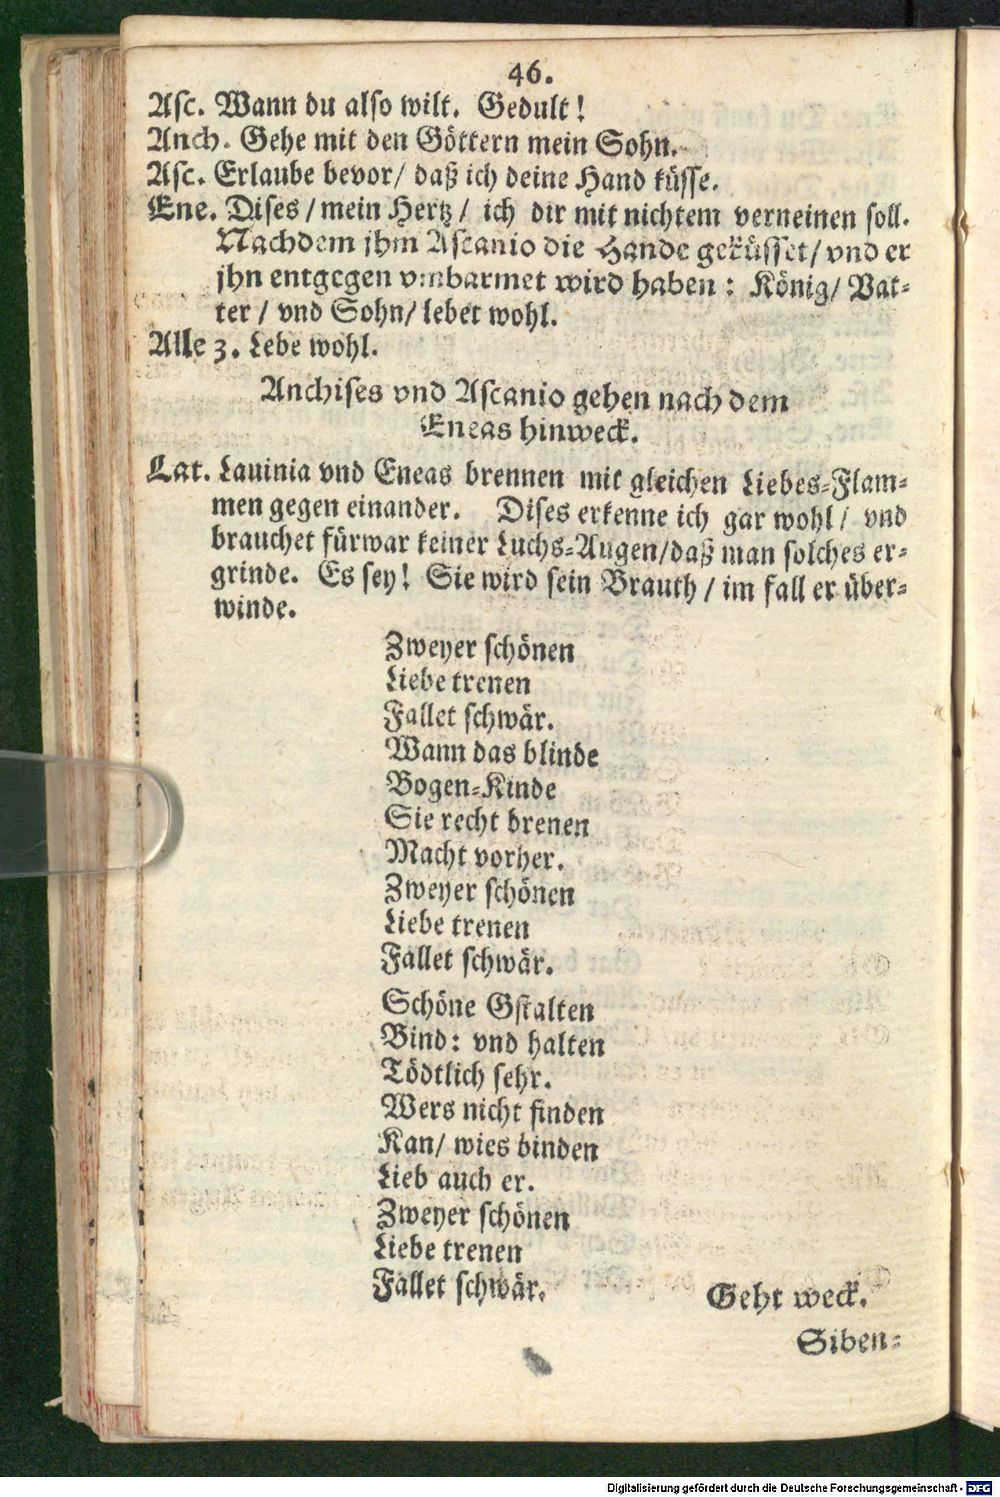 46.
Asc. Wann du also wilt. Gedult!
Anch. Gehe mit den Göttern mein Sohn.
Asc. Erlaube bevor/ daß ich deine Hand küsse.
Ene. Dises / mein Hertz / ich dir mit nichtem verneinen soll.
Nachdem jhm Ascanio die Hande geküsset/ vnd er
jhn entgegen vmbarmet wird haben : König/ Vat-
ter / vnd Sohn/ lebet wohl.
Alle 3. Lebe wohl.
Anchises vnd Ascanio gehen nach dem
Eneas hinweck.
Lat. Lauinia vnd Eneas brennen mit gleichen Liebes-Flam-
men gegen einander. Dises erkenne ich gar wohl / vnd
brauchet fürwar keiner Luchs-Augen/daß man solches er-
grinde. Es sey! Sie wird sein Brauth / im fall er über-
winde.
Zweyer schönen
Liebe trenen
Fallet schwär.
Wann das blinde
Bogen-Kinde
Sie recht brenen
Macht vorher.
Zweyer schönen
Liebe trenen
Fallet schwär.
Schöne Gstalten
Bind: vnd halten
Tödtlich sehr.
Wers nicht finden
Kan/ wies binden
Lieb auch er.
Zweyer schönen
Liebe trenen
Fallet schwär.
Geht weck.
Siben-
Digitalisierung gefördert durch die Deutsche Forschungsgemeinschaft - DFG